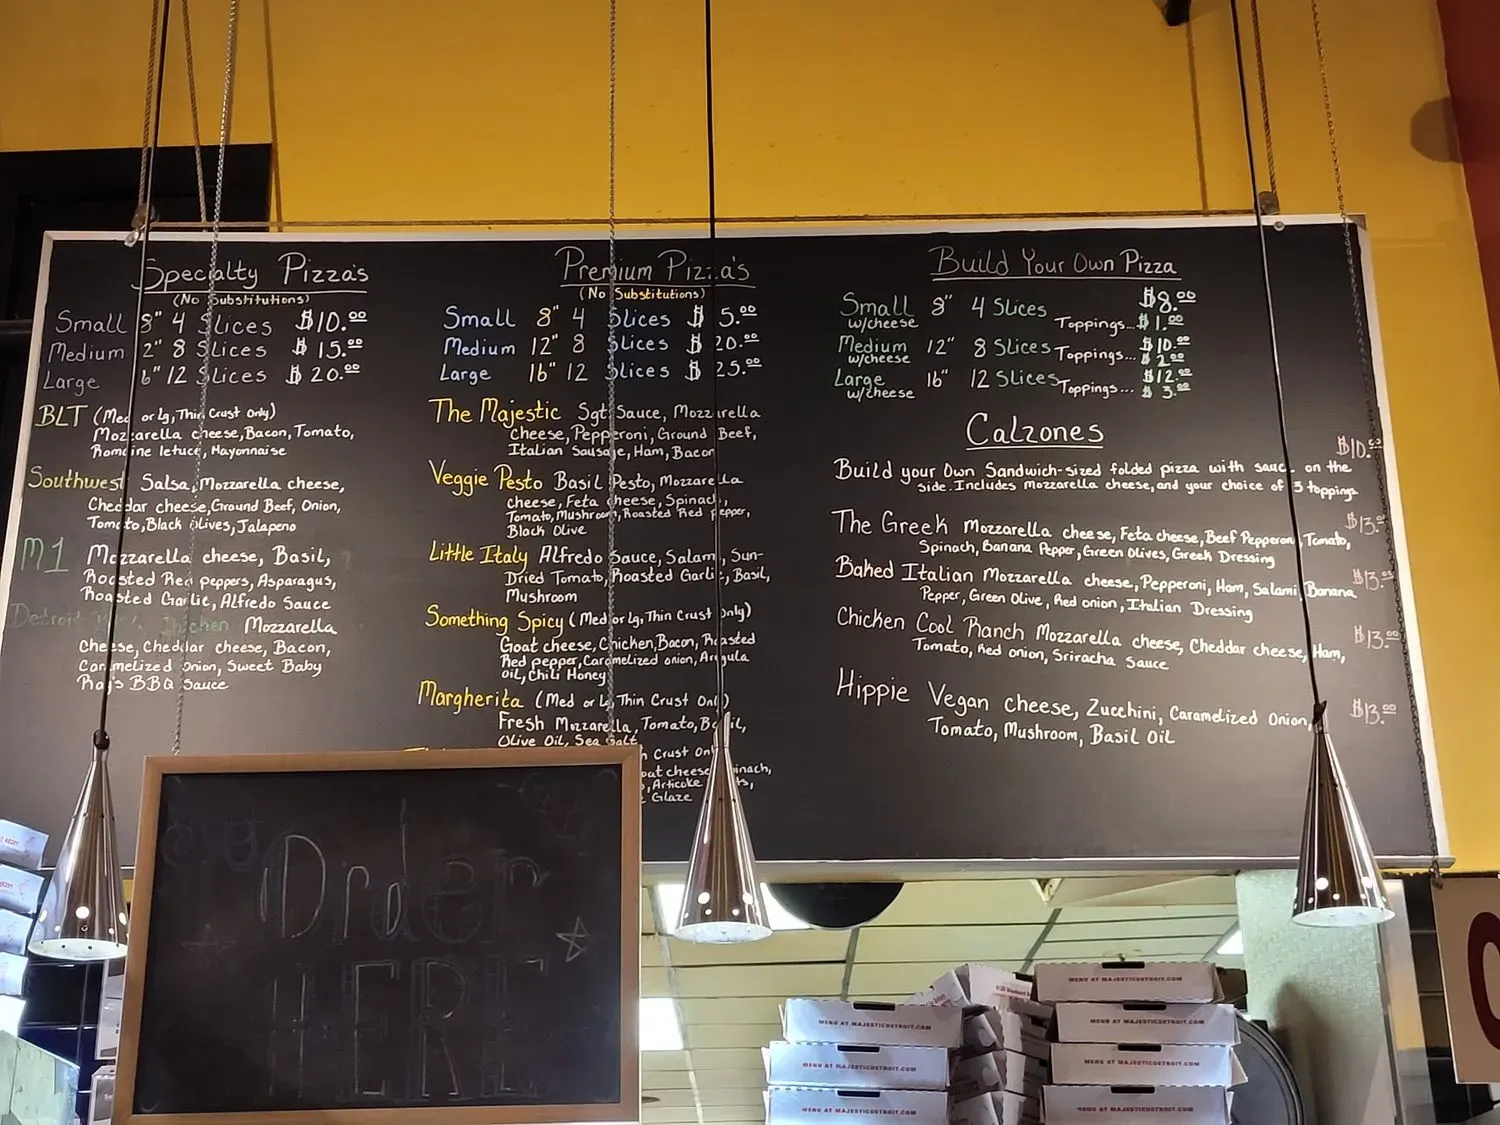 Specialty Pizza's
(No Substitutions)
Small 8" 4 Slices $10.00
Medium 2" 8 Slices $15.00
Large 6" 12 Slices $20.00
BLT (Med or Lg, Thin Crust Only)
Mozzarella cheese, Bacon, Tomato,
Romaine letuce, Mayonnaise
Southwest Salsa, Mozzarella cheese,
Cheddar cheese, Ground Beef, Onion,
Tomato, Black Olives, Jalapeno
M1 Mozzarella cheese, Basil,
Roasted Red peppers, Asparagus,
Roasted Garlic, Alfredo Sauce
Detroit Chicken Mozzarella
Cheese, Cheddar cheese, Bacon,
Caramelized Onion, Sweet Baby
Ray's BBQ Sauce
Premium Pizza's
(No Substitutions)
Small 8" 4 Slices $ 5.00
Medium 12" 8 Slices $20.00
Large 16" 12 Slices $25.00
The Majestic Sgt Sauce, Mozzarella
Cheese, Pepperoni, Ground Beef,
Italian Sausage, Ham, Bacon
Veggie Pesto Basil Pesto, Mozzarella
cheese, Feta cheese, Spinach,
Tomato, Mushroom, Roasted Red pepper,
Black Olive
Little Italy Alfredo Sauce, Salami, Sun-
Dried Tomato, Roasted Garlic, Basil,
Mushroom
Something Spicy (Med or Lg, Thin Crust Only)
Goat cheese, Chicken, Bacon, Roasted
Red pepper, Caramelized onion, Arugula
oil, Chili Honey
Margherita (Med or Lg, Thin Crust Only)
Fresh Mozzarella, Tomato, Basil,
Olive Oil, Sea Salt
Crust Only
cheese, Spinach,
Articoke
Glaze
Build Your Own Pizza
Small 8" 4 Slices $8.00
w/cheese Toppings... $1.00
Medium 12" 8 Slices $10.00
w/cheese Toppings... $2.00
Large 16" 12 Slices $12.00
w/cheese Toppings... $3.00
Calzones
$10.00
Build your Own Sandwich-sized folded pizza with sauce on the
side. Includes mozzarella cheese, and your choice of 3 toppings
The Greek Mozzarella cheese, Feta cheese, Beef Pepperoni, Tomato, $13.00
Spinach, Banana Pepper, Green Olives, Greek Dressing
Baked Italian Mozzarella cheese, Pepperoni, Ham, Salami, Banana $13.00
Pepper, Green Olive, Red onion, Italian Dressing
Chicken Cool Ranch Mozzarella cheese, Cheddar cheese, Ham, $13.00
Tomato, Red onion, Sriracha Sauce
Hippie Vegan cheese, Zucchini, Caramelized Onion, $13.00
Tomato, Mushroom, Basil Oil
Order
HERE
MENU AT MAJESTICDETROIT.COM
MENU AT MAJESTICDETROIT.COM
MENU AT MAJESTICDETROIT.COM
MENU AT MAJESTICDETROIT.COM
MENU AT MAJESTICDETROIT.COM
MENU AT MAJESTICDETROIT.COM
MENU AT MAJESTICDETROIT.COM